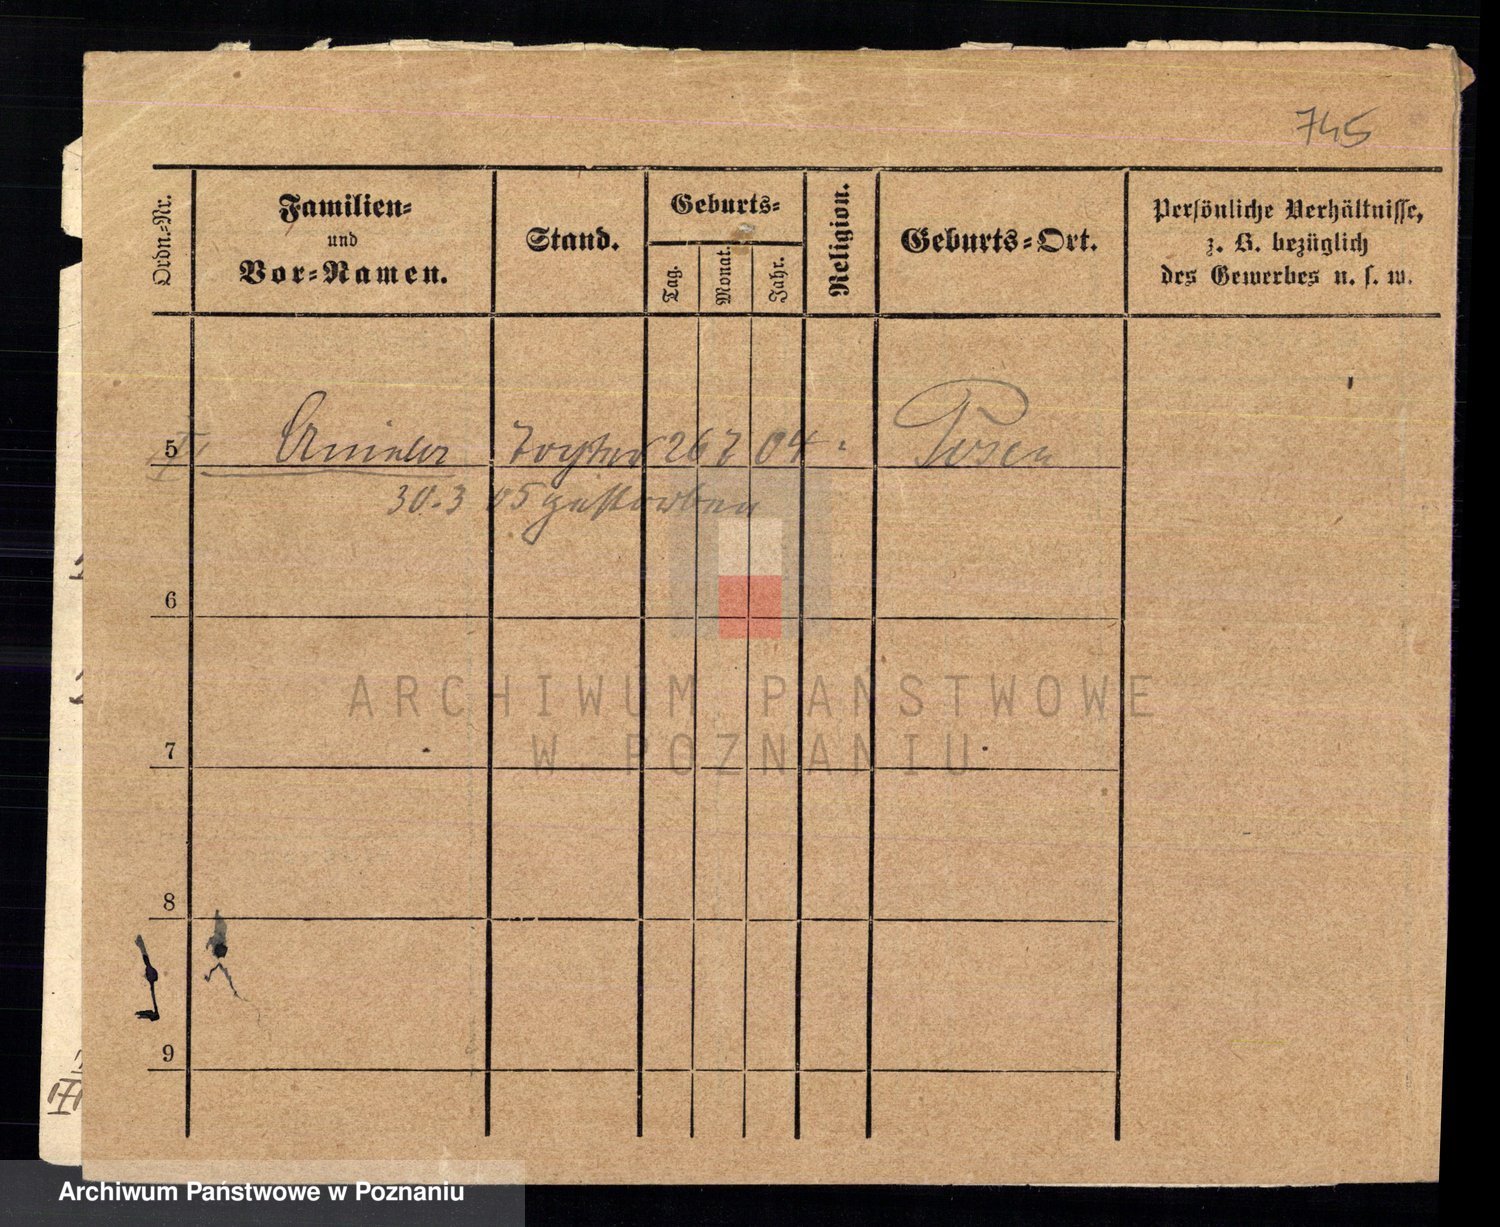 745
Ordn.-Nr.
Familien-
und
Vor-Namen.
Stand.
Geburts-
Tag.
Monat.
Jahr.
Religion.
Geburts-Ort.
Persönliche Verhältnisse,
z. B. bezüglich
des Gewerbes u. s. w.
5 Tochter 26 7 04 " Posen
30.3 05 gestorben
6
ARCHIWUM PAŃSTWOWE
W POZNANIU
7
8
9
Archiwum Państwowe w Poznaniu